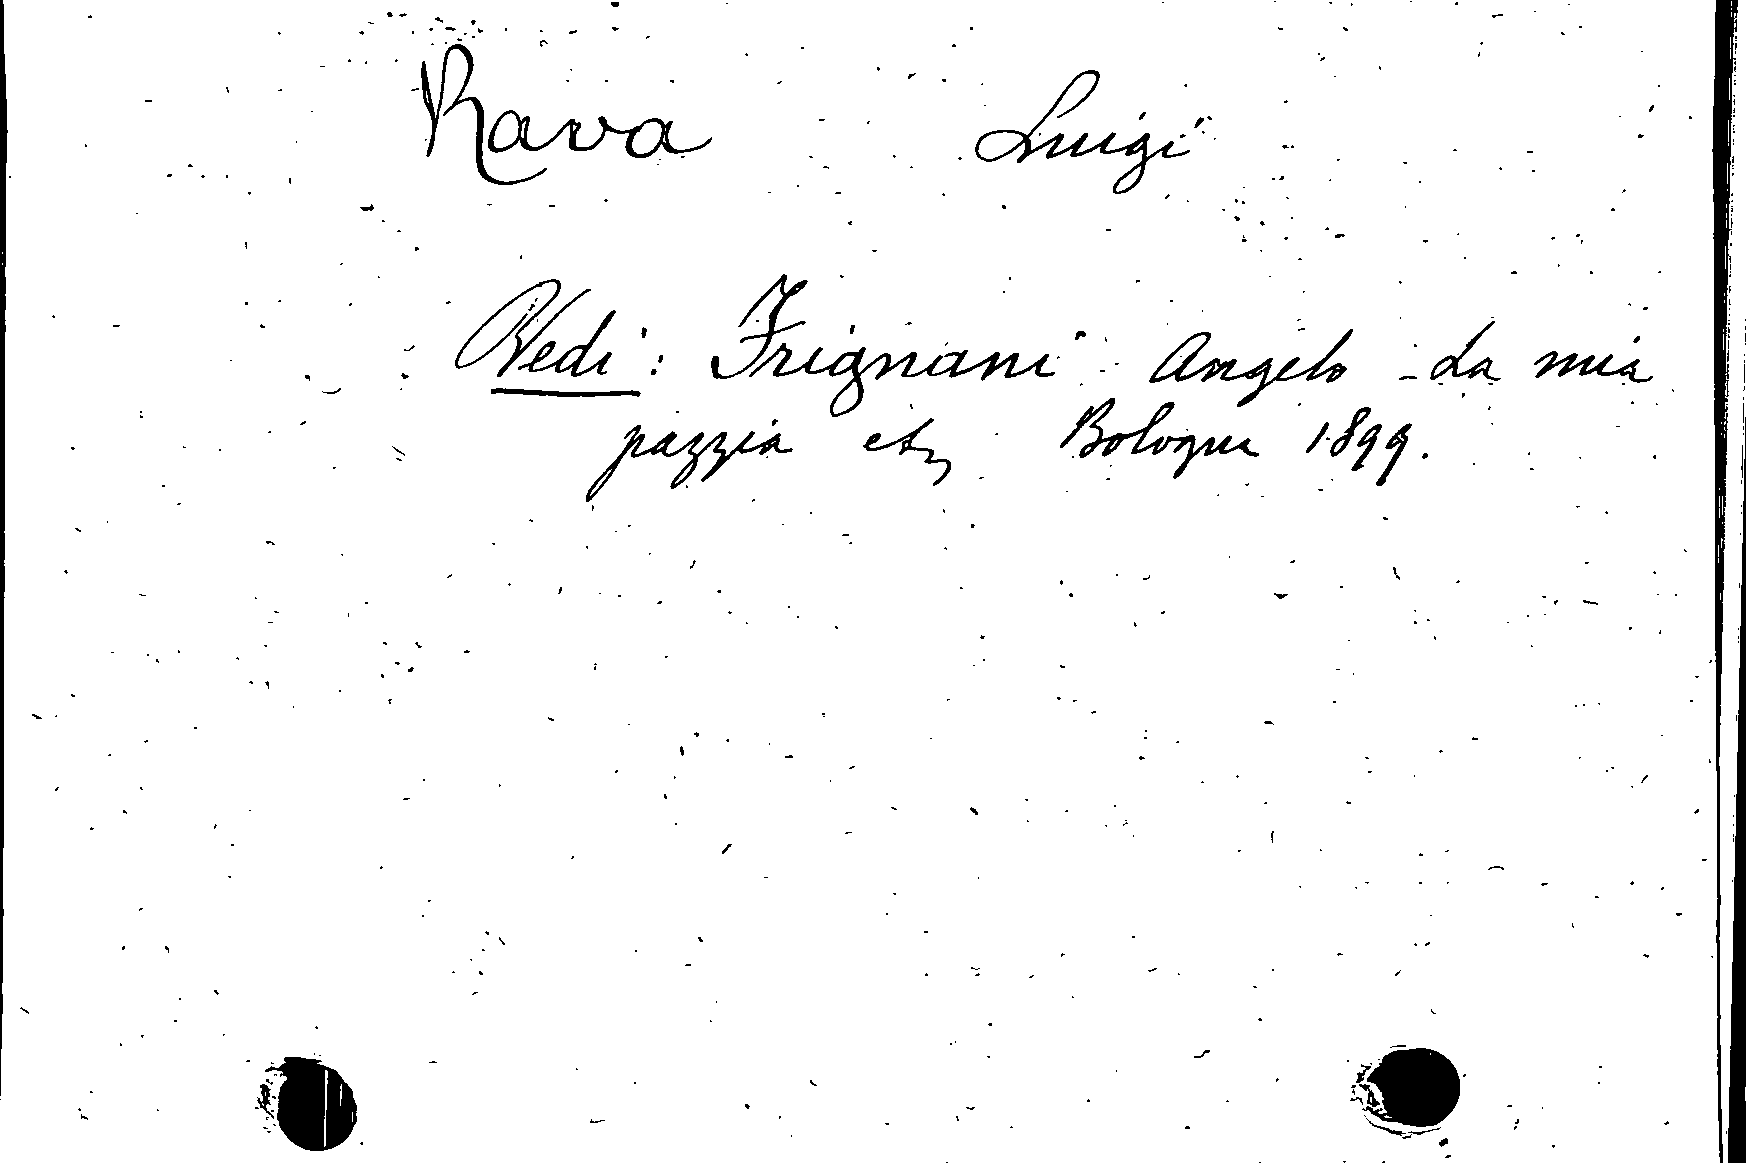 Rava Luigi
Vedi: Frignani Angelo - La mia
pazzia etc Bologna 1899.